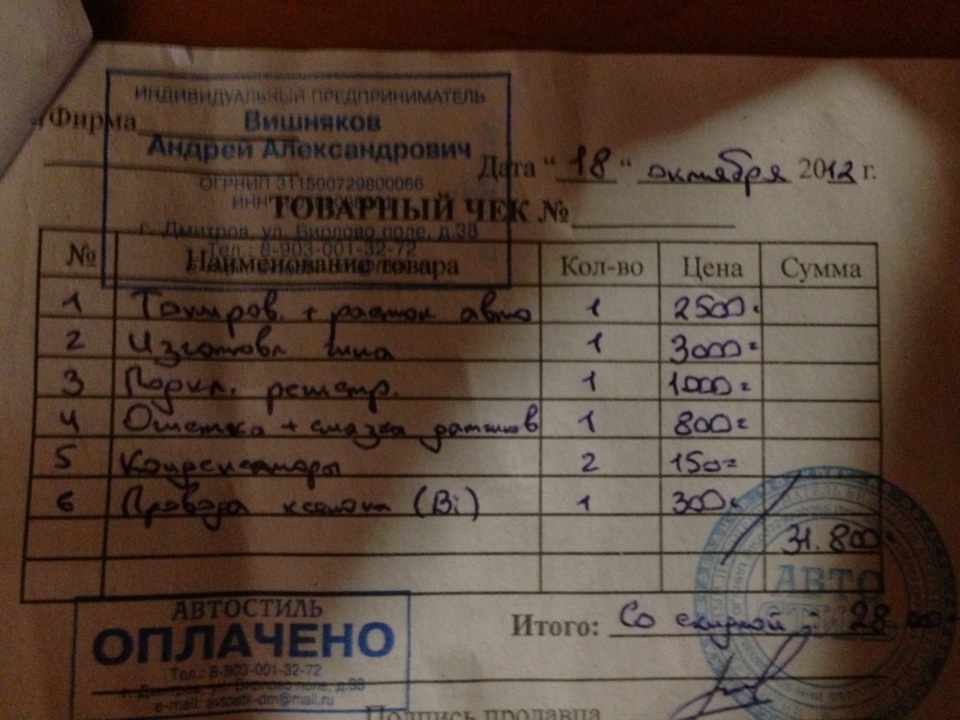 ИНДИВИДУАЛЬНЫЙ ПРЕДПРИНИМАТЕЛЬ
Фирма
Вишняков
Андрей Александрович
Дата “ 18 “ октября 2012 г.
ОГРНИП 311500729800066
ИНН
ТОВАРНЫЙ ЧЕК №
г. Дмитров, ул. Бирлово поле, д.38
Тел.: 8-903-001-32-72
№ Наименование товара Кол-во Цена Сумма
1 Тониров. + авто 1 2500
2 Изготовл 1 3000=
3 Подкл. регистр. 1 1000=
4 + смазка датчиков 1 800=
5 Конденсаторы 2 150=
6 Провода ксенона (Bi) 1 300
31.800
АВТО
АВТОСТИЛЬ
Итого: Со скидкой - 28.000
ОПЛАЧЕНО
Тел.: 8-903-001-32-72
г. ул. Бирлово поле, д.38
e-mail: avtostil-dm@mail.ru
Подпись продавца